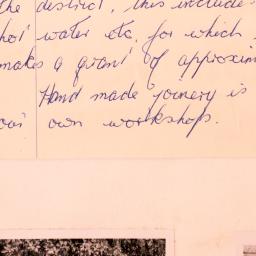 the district, this include
hot water etc. for which
makes a grant of approxim
Hand made joinery is
our own workshops.